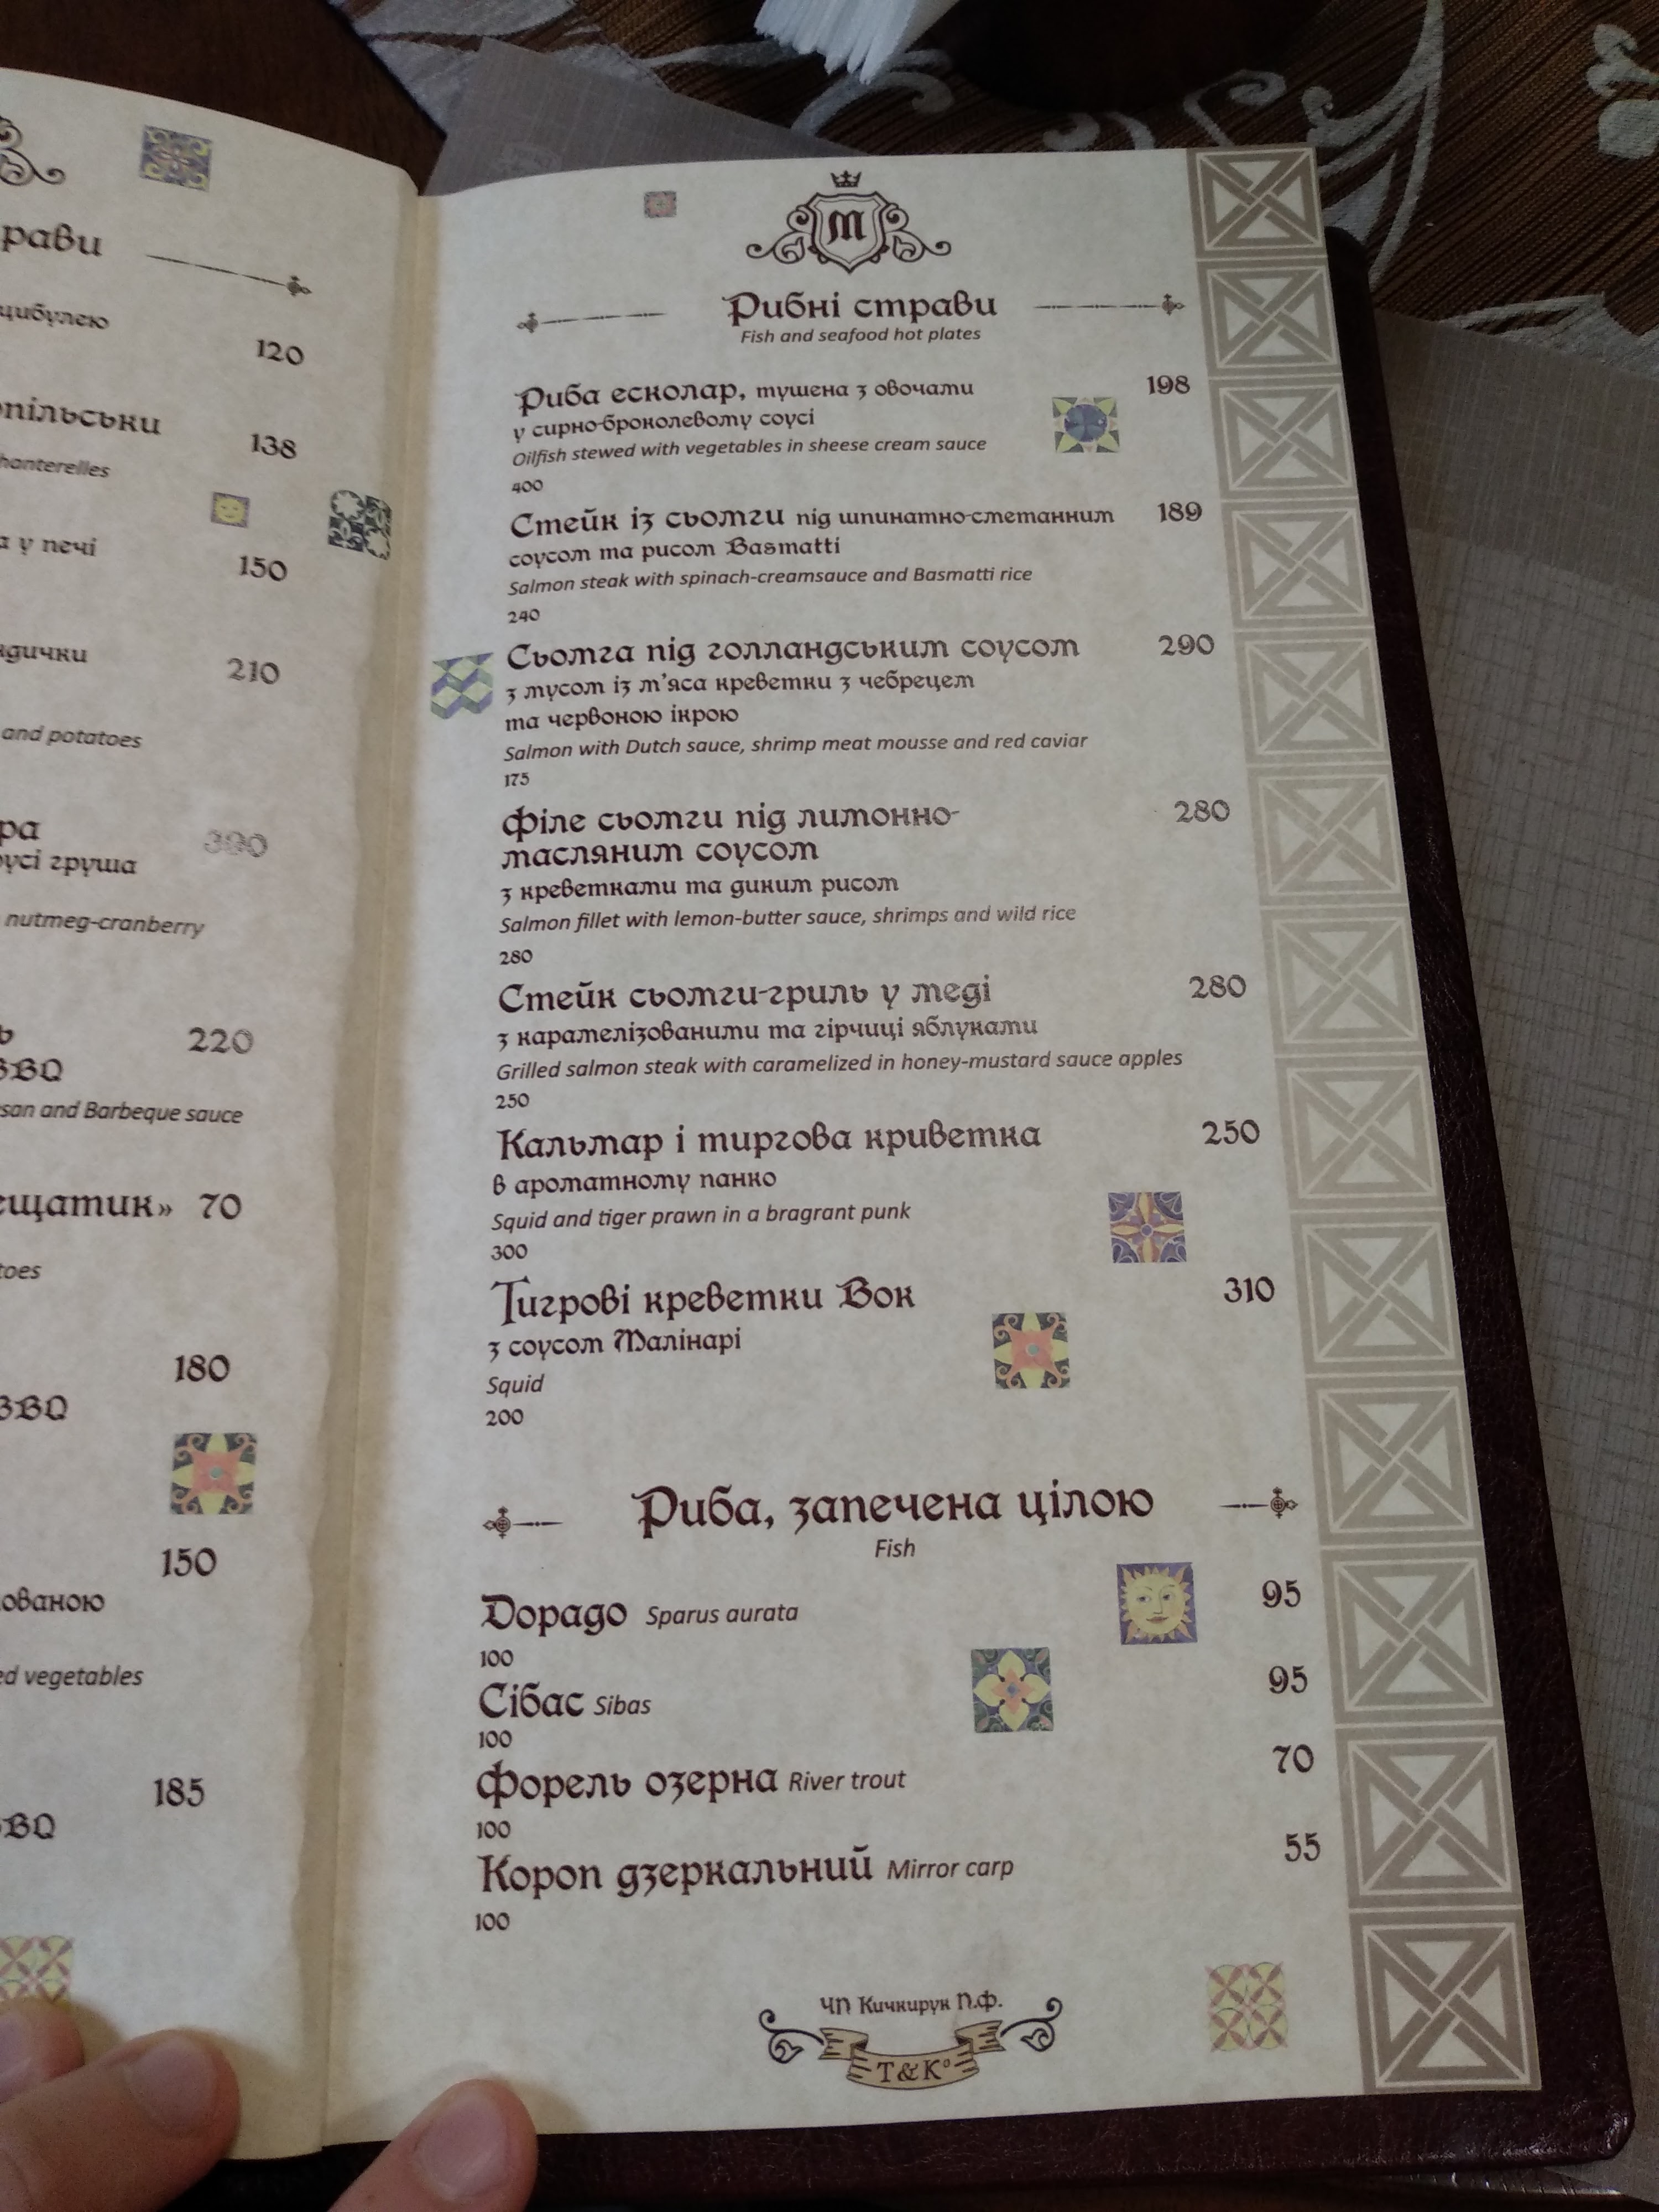 рави
цибулею
120
пільськи
138
hanterelles
а у печі
150
ндички
210
and potatoes
ра
усі груша
nutmeg-cranberry
ь
220
BBQ
san and Barbeque sauce
ещатик» 70
toes
180
BBQ
150
ованою
ed vegetables
185
BBQ
M
Рибні страви
Fish and seafood hot plates
Риба есколар, тушена з овочами 198
у сирно-броколевому соусі
Oilfish stewed with vegetables in sheese cream sauce
400
Стейк із сьомги під шпинатно-сметанним 189
соусом та рисом Basmatti
Salmon steak with spinach-creamsauce and Basmatti rice
240
Сьомга під голландським соусом 290
з мусом із м'яса креветки з чебрецем
та червоною ікрою
Salmon with Dutch sauce, shrimp meat mousse and red caviar
175
Філе сьомги під лимонно- 280
масляним соусом
з креветками та диким рисом
Salmon fillet with lemon-butter sauce, shrimps and wild rice
280
Стейк сьомги-гриль у меді 280
з карамелізованими та гірчиці яблуками
Grilled salmon steak with caramelized in honey-mustard sauce apples
250
Кальмар і тиргова криветка 250
в ароматному панко
Squid and tiger prawn in a bragrant punk
300
Тигрові креветки Вок 310
з соусом Малінарі
Squid
200
Риба, запечена цілою
Fish
Дорадо Sparus aurata 95
100
Сібас Sibas 95
100
Форель озерна River trout 70
100
Короп дзеркальний Mirror carp 55
100
ЧП Кичкирук П.Ф.
T&Kº